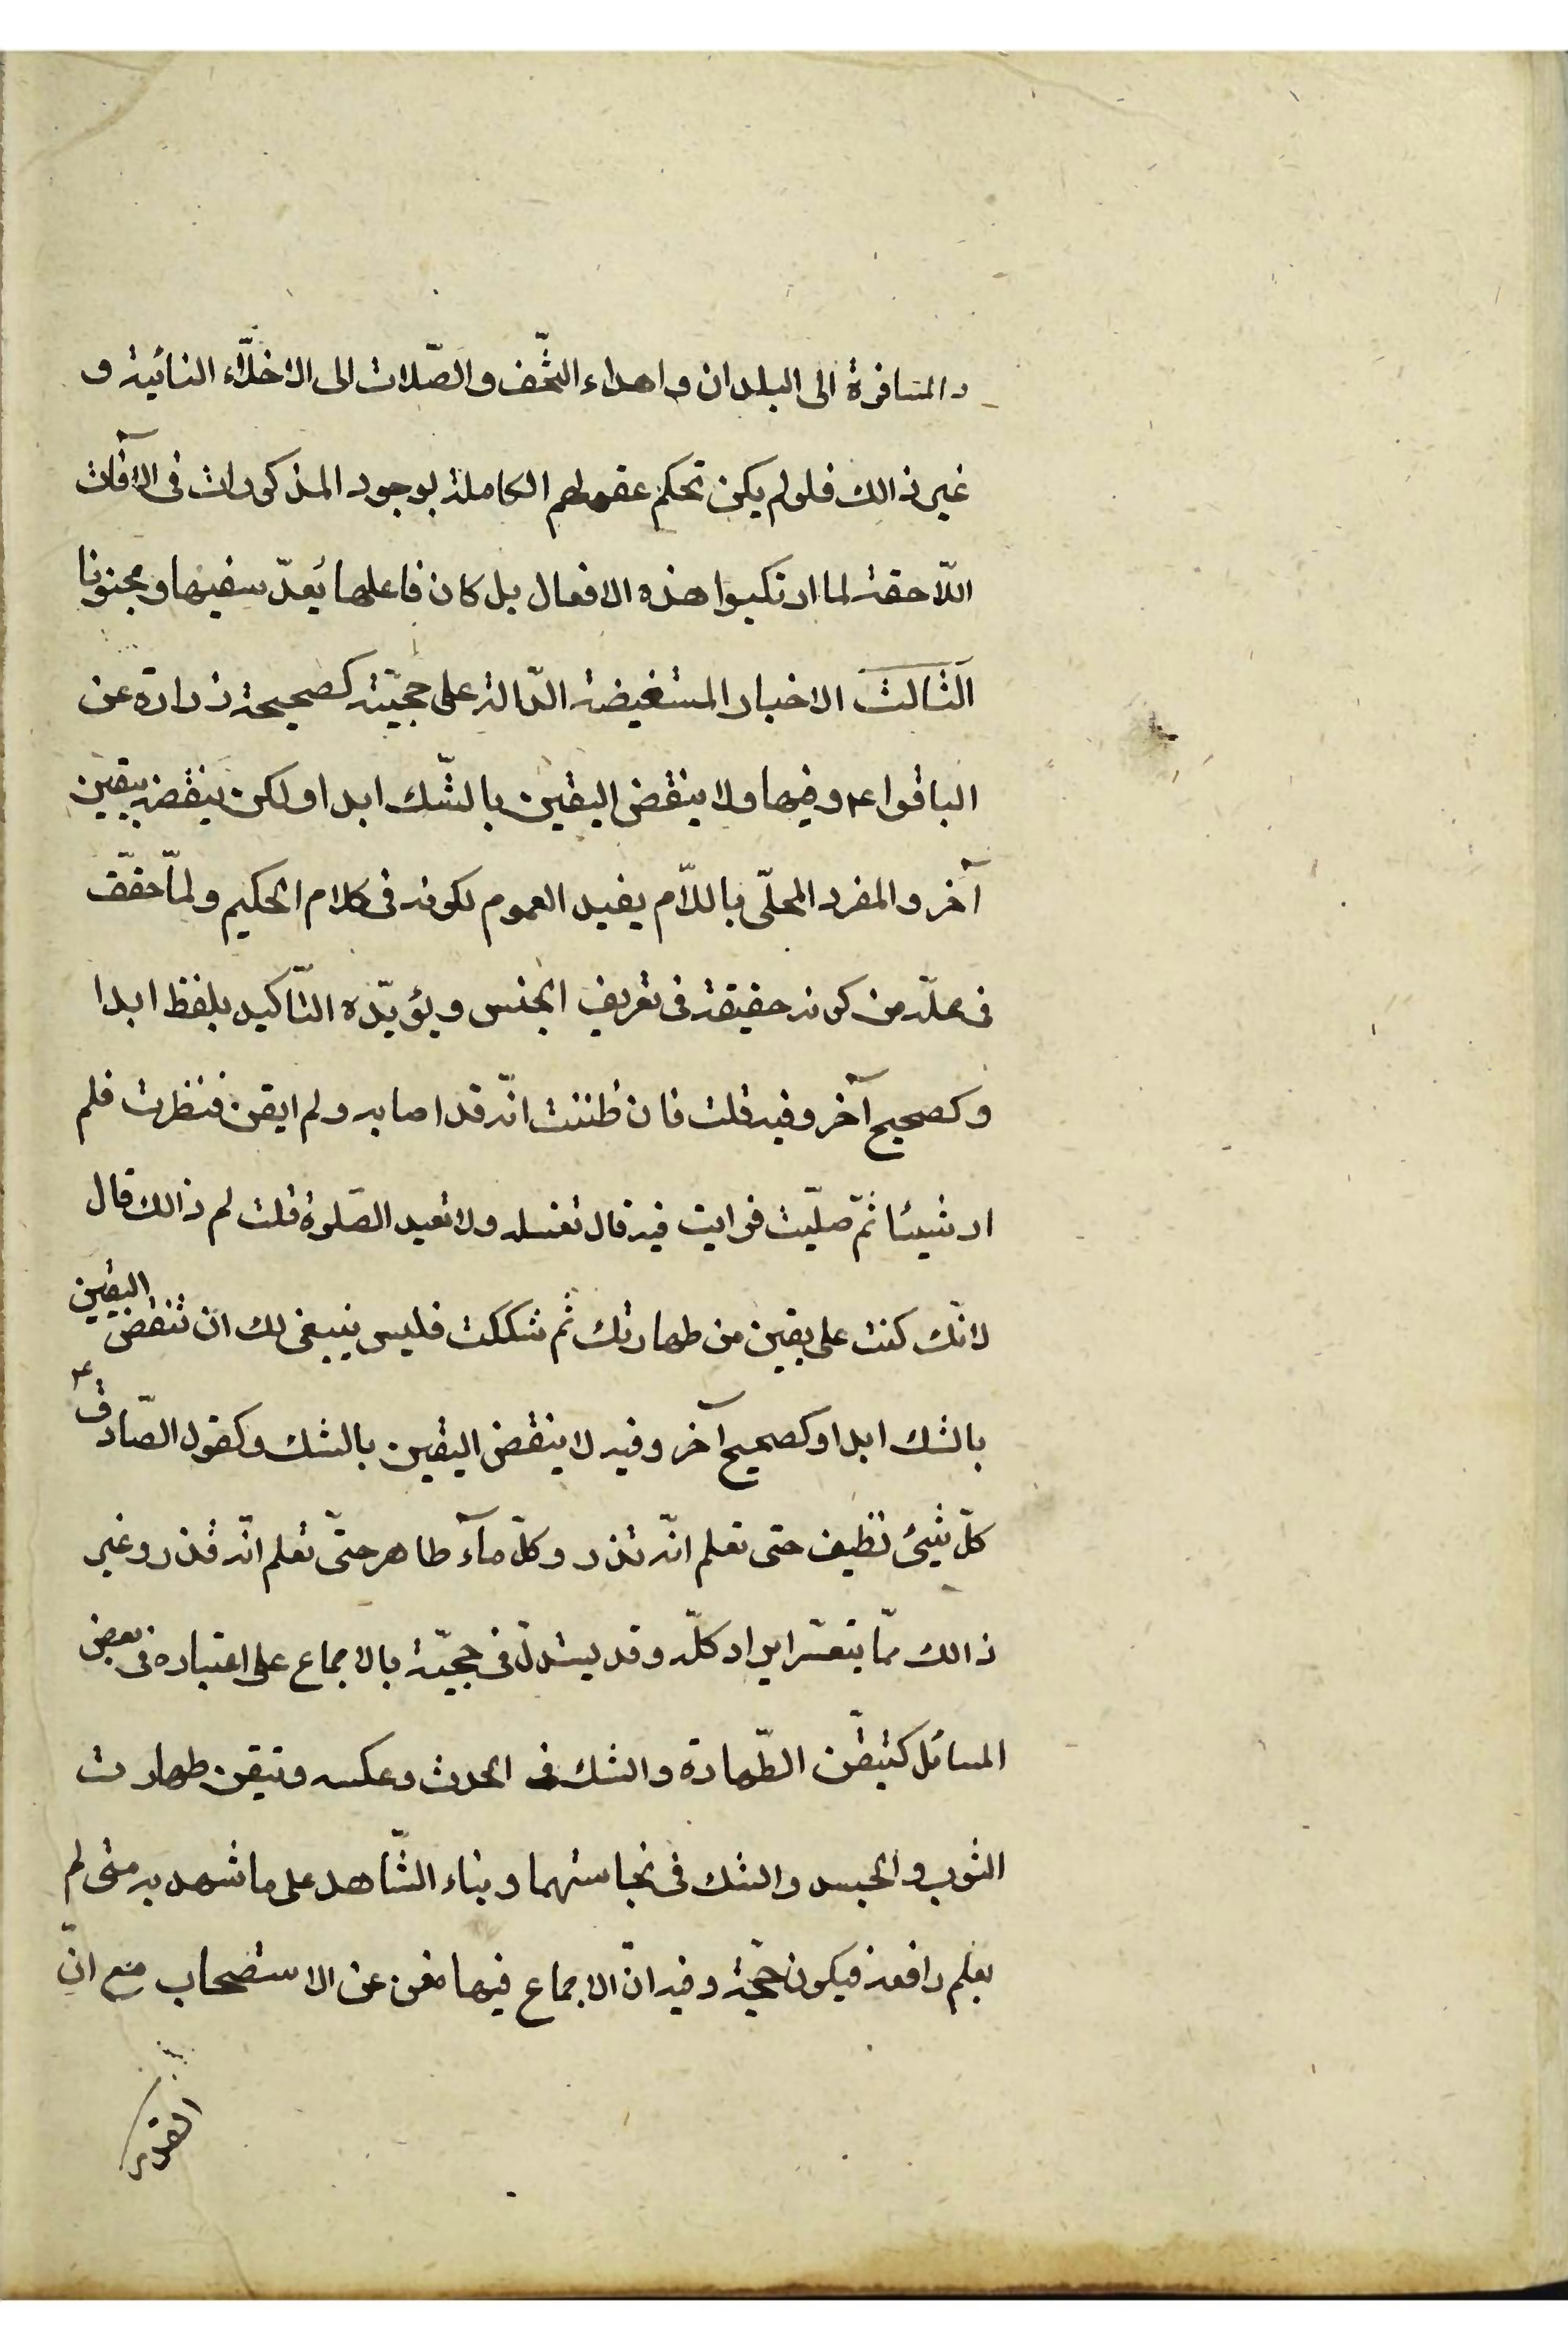 والمسافرة الى البلدان واهداء التّحف والصّلات الى الاخلّاء النائية و
غير ذالك فلو لم يكن تحكم عقولهم الكاملة بوجود المذكورات فى الآفات
اللّاحقة لما ارتكبوا هذه الافعال بل كان فاعلها يُعدّ سفيها ومجنونا
الثالث الاخبار المستفيضة الدّالة على حجيّته كصحيحة زرارة عن
الباقر عم وفيها ولا ينقض اليقين بالشّك ابدا ولكن ينقضه بيقين
آخر والمفرد المحلّى باللّام يفيد العموم لكونه فى كلام الحكيم ولمّا حقّق
فى محلّه من كونه حقيقة فى تعريف الجنس ويؤيّده التّاكيد بلفظ ابدا
وكصحيح آخر وفيه قلت فان ظننت انّه قد اصابه ولم ايقن فنظرت فلم
ار شيئا ثمّ صلّيت فرايت فيه قال تغسله ولا تعيد الصّلوة قلت لم ذالك قال
لانّك كنت على يقين من طهارتك ثم شككت فليس ينبغى لك ان تنقض اليقين
بالشك ابدا وكصحيح آخر وفيه لا ينقض اليقين بالشك وكقول الصّادق عم
كلّ شيئ نظيف حتى تعلم انّه قذر وكلّ مآء طاهر حتّى تعلم انّه قذر وغير
ذالك ممّا يتعسّر ايراد كلّه وقد يستدلّ فى حجيّة بالاجماع على اعتباره فى بعض
المسائل كتيقّن الطّهارة والشك فى الحدث وعكسه وتيقن طهارت
الثوب والجسد والشك فى نجاستهما وبناء الشّاهد على ما شهد به متى لم
يعلم رافعه فيكون حجّة وفيه انّ الاجماع فيها مغن عن الاستصحاب مع انّ